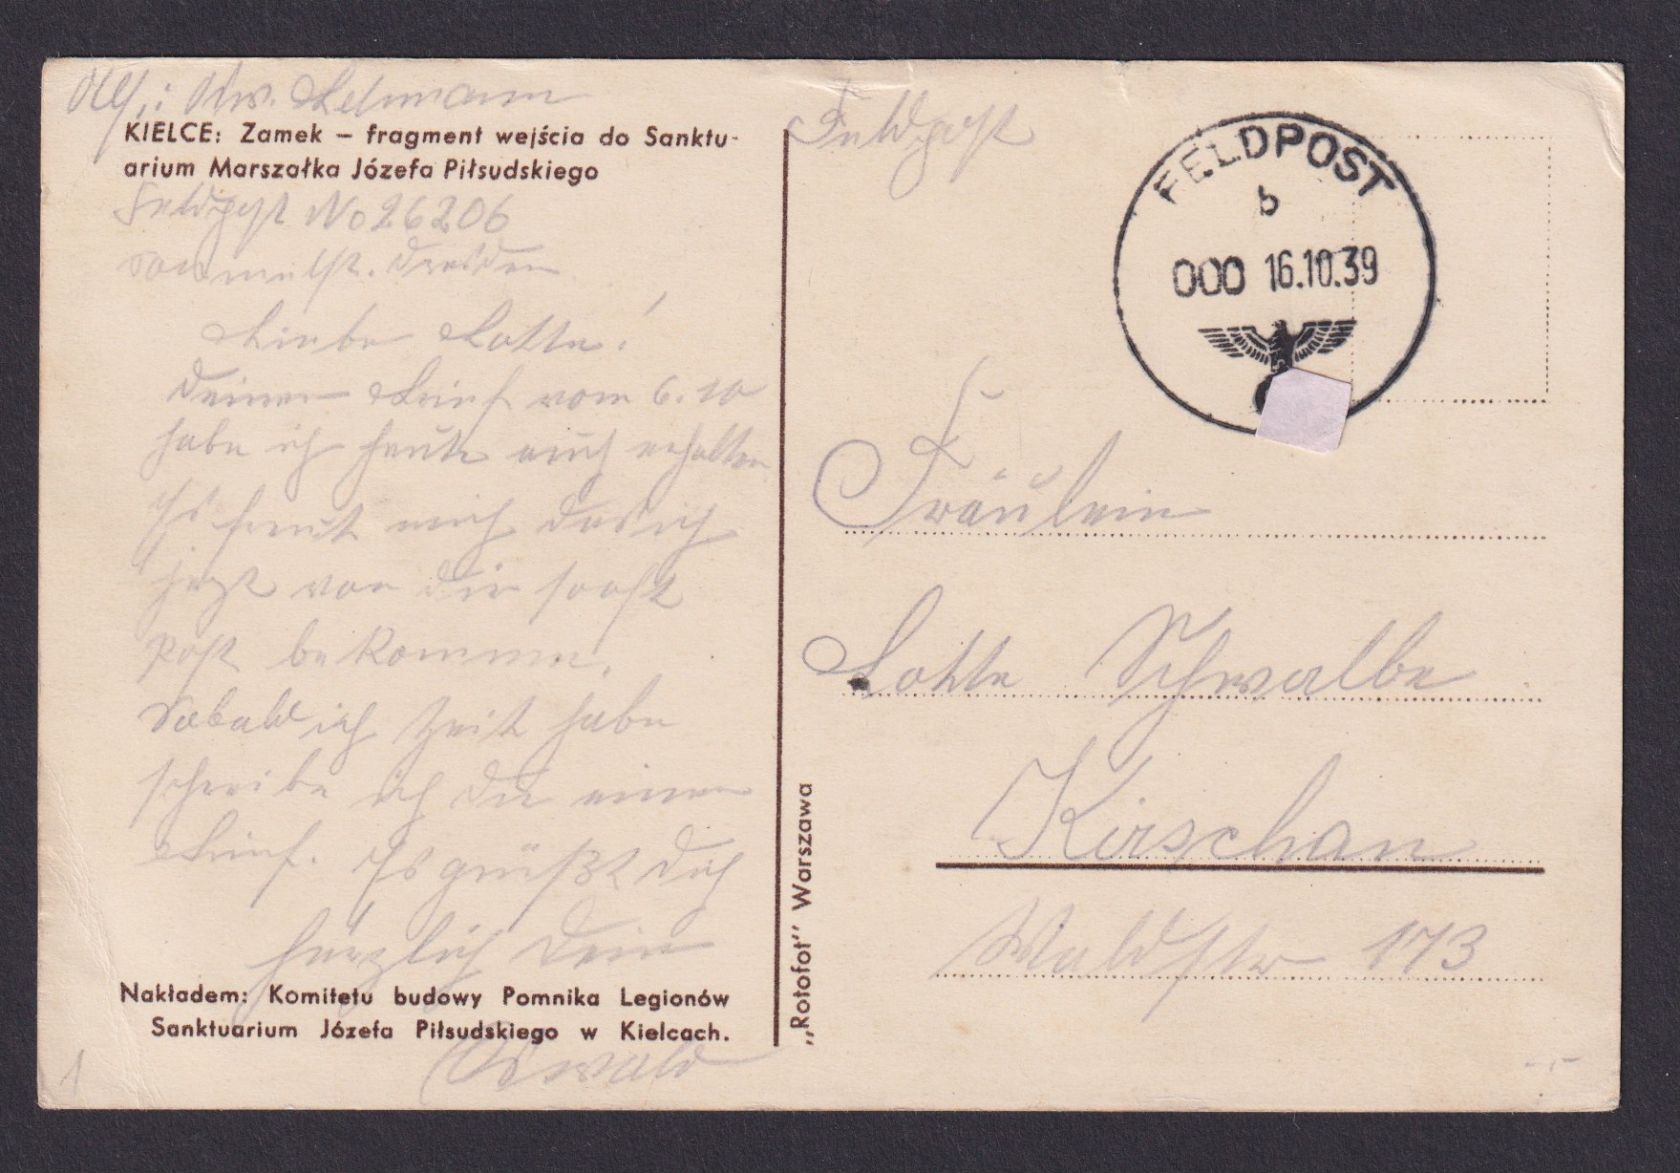 Abs.: Osw. Lehmann
KIELCE: Zamek – fragment wejścia do Sanktu-
arium Marszałka Józefa Piłsudskiego
Feldpost No 26206
Sammelst. Dresden
Liebe Lotte!
Deinen Brief vom 6.10
habe ich heute auch erhalten
Es freut mich das ich
jezt von dir sooft
Post bekomme.
Sobald ich Zeit habe
schreibe ich Dir einen
Brief. Es grüßt Dich
herzlich Dein
Nakładem: Komitetu budowy Pomnika Legionów
Sanktuarium Józefa Piłsudskiego w Kielcach.
Oswald
1
„Rotofot" Warszawa
Feldpost
FELDPOST
b
000 16.10.39
Fräulein
Lotte Schwalbe
Kirschau
Waldstr 173